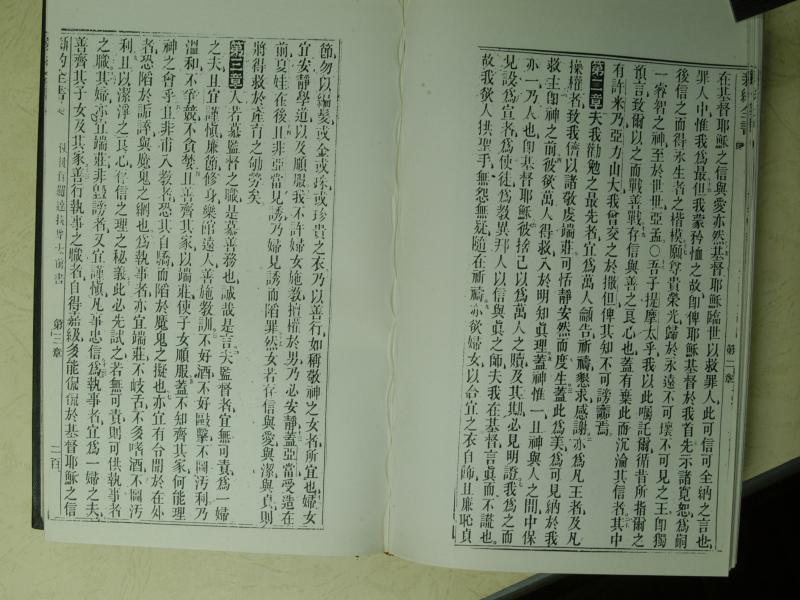 在基督耶穌之信與愛亦然基督耶穌臨世以救罪人此可信可全納之言也
罪人中惟我為最但我蒙矜恤之故即俾耶穌基督於我首先示諸寬恕為嗣
後信之而得永生者之楷模願尊貴榮光歸於永遠不可壞不可見之王即獨
一睿智之神至於世世亞孟○吾子提摩太乎我以此囑託爾循昔所指爾之
預言致爾以之而戰善戰存信與善之良心也蓋有棄此而沉淪其信者其中
有許米乃亞力山大我曾交之於撒但俾其知不可謗讟焉
第二章夫我勸勉之最先者宜為萬人籲告祈禱懇求感謝亦為凡王者及凡
操權者致我儕以諸敬虔端莊可恬靜安然而度生蓋此為美為可見納於我
救主即神之前彼欲萬人得救入於明知真理蓋神惟一且神與人之間中保
亦一乃人也即基督耶穌彼捨己以為萬人之贖及其期必見明證我為之而
見設為宣者為使徒為教異邦人以信與真之師夫我在基督言真而不謊也
故我欲人拱聖手無怨無疑隨在祈禱亦欲婦女以合宜之衣自飾且廉恥貞
節勿以編髮或金或珠或珍貴之衣乃以善行如稱敬神之女者所宜也婦女
宜安靜學道以及順服我不許婦女施教擅權於男乃必安靜蓋亞當受造在
前夏娃在後且非亞當見誘乃婦見誘而陷罪然女若存信與愛與潔與貞則
將得救於產育之劬勞矣
第三章人若慕監督之職是慕善務也誠哉是言夫監督者宜無可責為一婦
之夫且宜謹慎廉節修身樂館遠人善施教訓不好酒不好毆擊不圖污利乃
溫和不爭競不貪婪且善齊其家以端莊使子女順服蓋不知齊其家何能理
神之會乎且非甫入教者恐其自驕而陷於魔鬼之擬也亦宜有令聞於在外
者恐陷於詬誶與魔鬼之網也為執事者亦宜端莊不岐舌不多嗜酒不圖污
利且以潔淨之良心存信之理之秘義此必先試之若無可責則可供執事者
之職其婦亦宜端莊非毀謗者又宜謹慎凡事忠信為執事者宜為一婦之夫
善齊其子女及其家善行執事之職者自得嘉級多能侃侃於基督耶穌之信
新約全書
第三章
二百